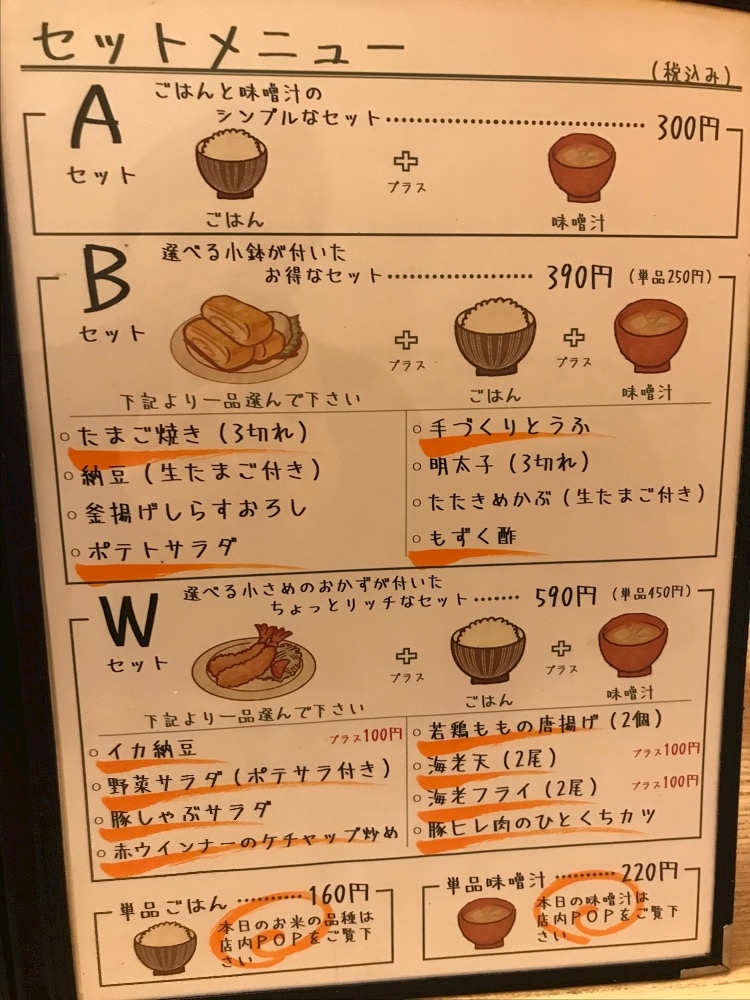 セットメニュー
(税込み)
A
セット
ごはんと味噌汁の
シンプルなセット……………………300円
プラス
ごはん
味噌汁
B
セット
選べる小鉢が付いた
お得なセット……………390円 (単品250円)
プラス
プラス
ごはん
味噌汁
下記より一品選んで下さい
○たまご焼き(3切れ)
○納豆(生たまご付き)
○釜揚げしらすおろし
○ポテトサラダ
○手づくりとうふ
○明太子(3切れ)
○たたきめかぶ(生たまご付き)
○もずく酢
W
セット
選べる小さめのおかずが付いた
ちょっとリッチなセット……590円 (単品450円)
プラス
プラス
ごはん
味噌汁
下記より一品選んで下さい
○イカ納豆 プラス100円
○野菜サラダ(ポテサラ付き)
○豚しゃぶサラダ
○赤ウインナーのケチャップ炒め
○若鶏ももの唐揚げ(2個)
○海老天(2尾) プラス100円
○海老フライ(2尾) プラス100円
○豚ヒレ肉のひとくちカツ
単品ごはん………160円
本日のお米の品種は
店内POPをご覧下
さい
単品味噌汁………220円
本日の味噌汁は
店内POPをご覧下
さい